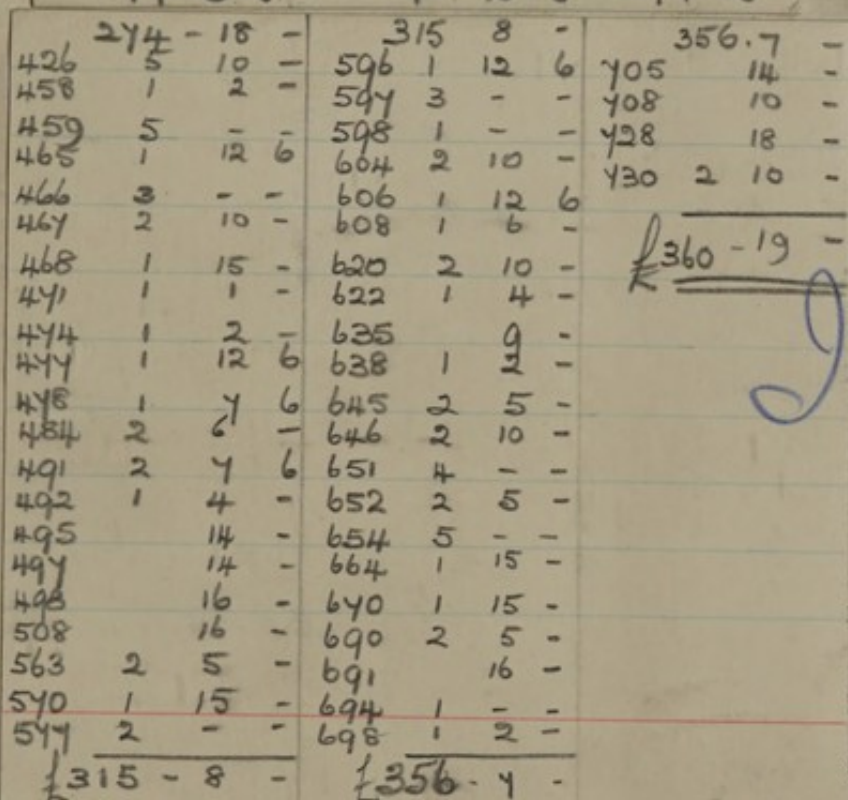 274 - 18 -
426 5 10 -
458 1 2 -
459 5 - -
465 1 12 6
466 3 - -
467 2 10 -
468 1 15 -
471 1 1 -
474 1 2 -
477 1 12 6
478 1 7 6
484 2 6 -
491 2 7 6
492 1 4 -
495 14 -
497 14 -
498 16 -
508 16 -
563 2 5 -
570 1 15 -
577 2 - -
£315 - 8 -
315 8 -
596 1 12 6
597 3 - -
598 1 - -
604 2 10 -
606 1 12 6
608 1 6 -
620 2 10 -
622 1 4 -
635 9 -
638 1 2 -
645 2 5 -
646 2 10 -
651 4 - -
652 2 5 -
654 5 - -
664 1 15 -
670 1 15 -
690 2 5 -
691 16 -
694 1 - -
698 1 2 -
£356 - 7 -
356.7 -
705 14 -
708 10 -
728 18 -
730 2 10 -
£360 - 19 -